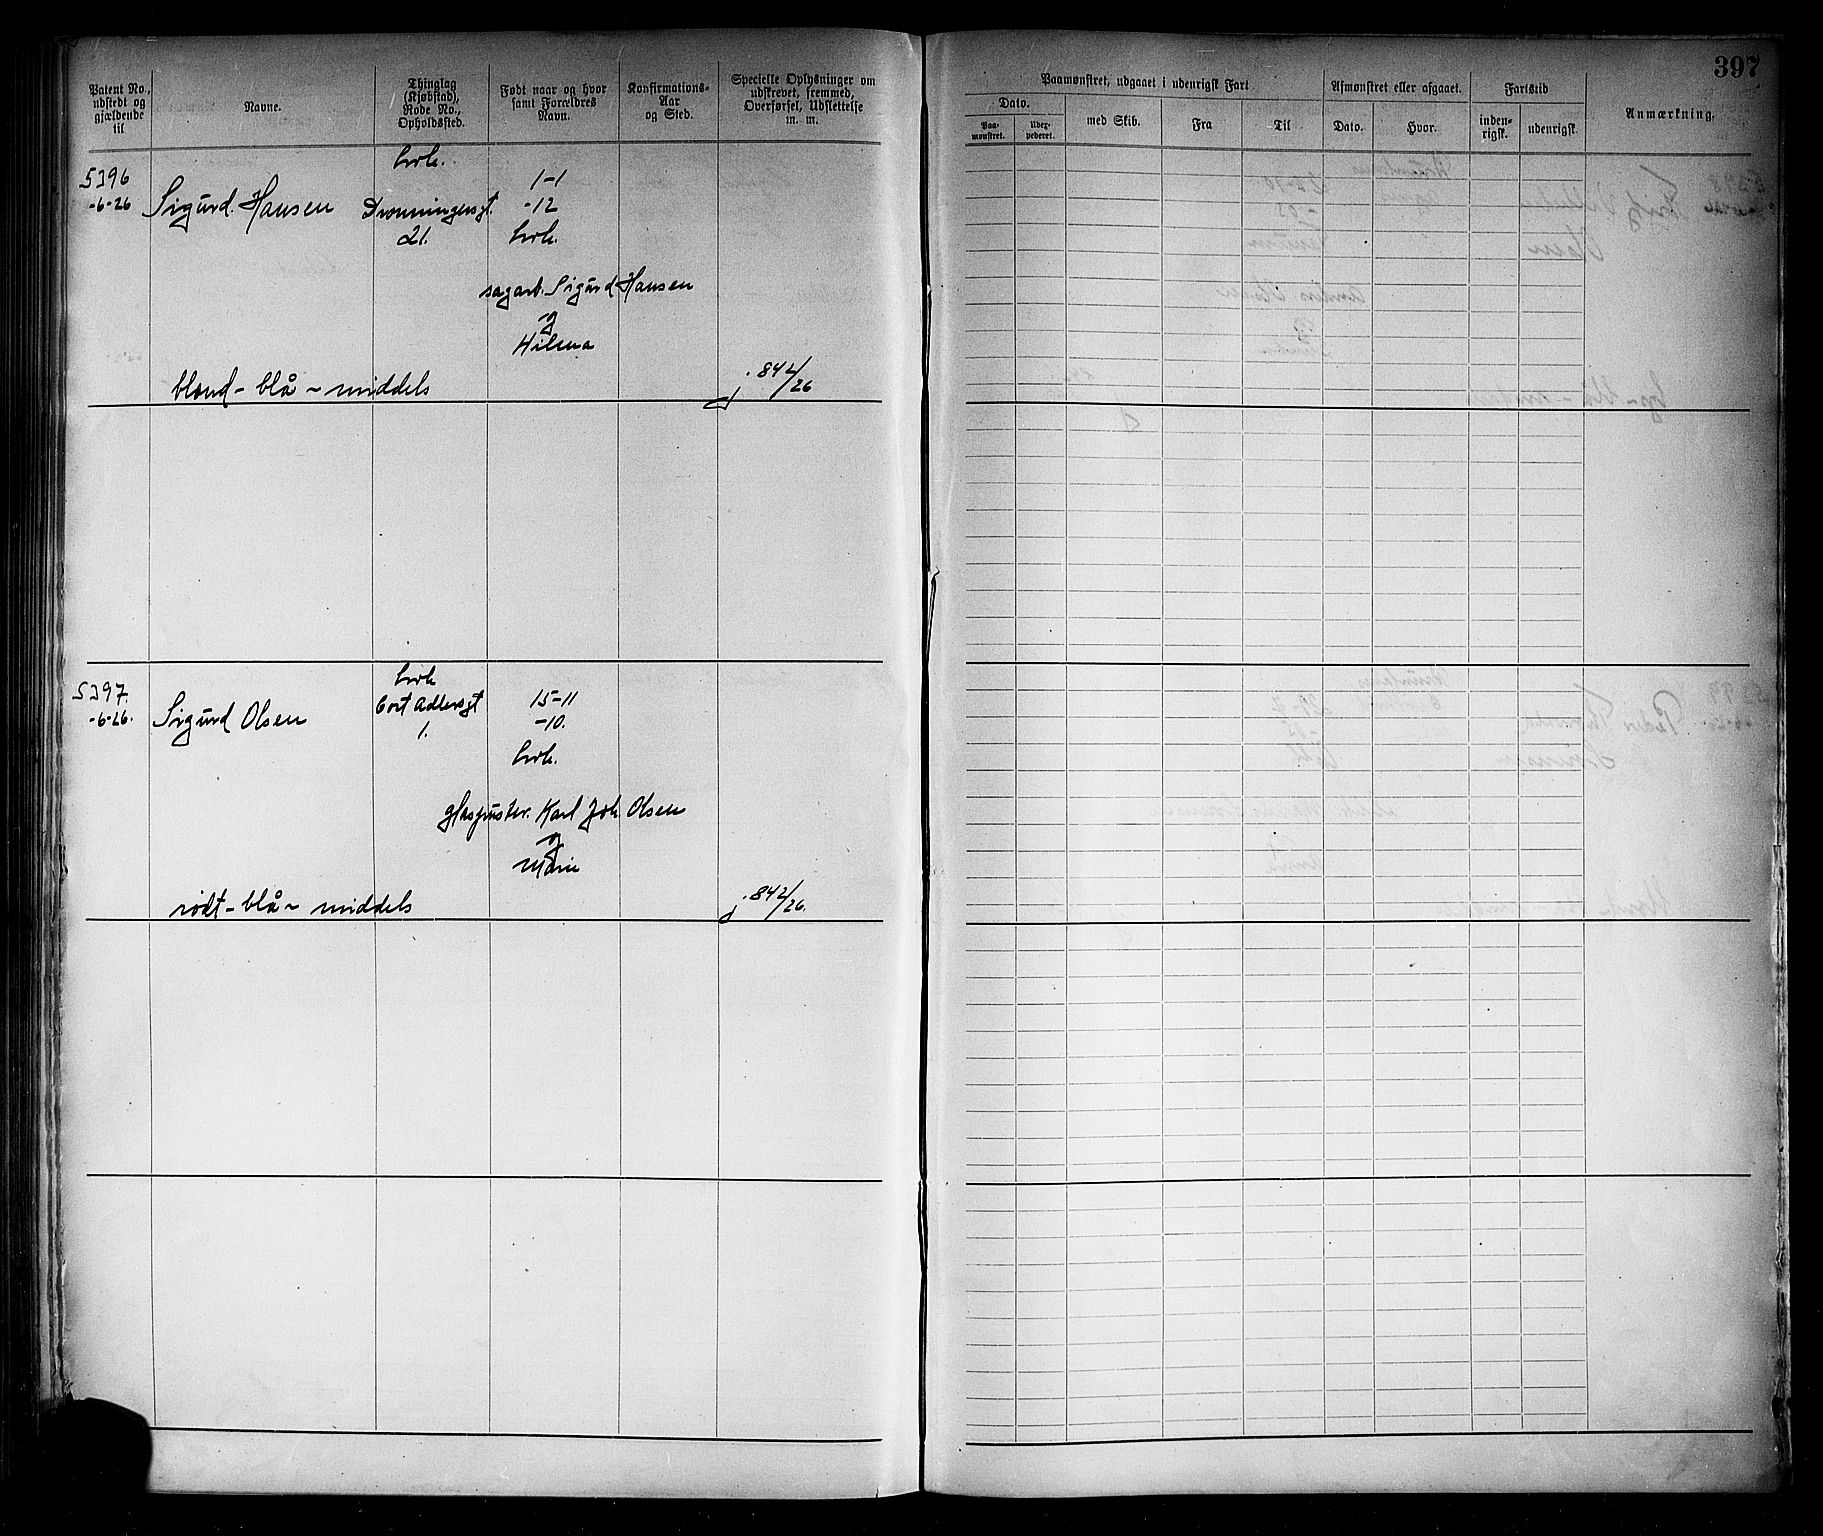 397
Patent No.,
udstedt og
gjældende
til
Navne.
Thinglag
(Kjøbstad),
Rode No.,
Opholdssted.
Født naar og hvor
samt Forældres
Navn.
Konfirmations-
Aar
og Sted.
Specielle Oplysninger om
udskrevet, fremmed,
Overførsel, Udslettelse
m. m.
Paamønstret, udgaaet i udenrigsk Fart
Dato.
Paa-
mønstret.
Uder-
pederet.
med Skib.
Fra
Til
Afmønstret eller afgaaet.
Dato.
Hvor.
Fartstid
inden-
rigsk.
udenrigsk.
Anmærkning.
5396
-6-26
Sigurd Hansen
Lvk.
Dronningensgt.
21.
1-1
-12
Lvk.
sagarb. Sigurd Hansen
og
Hilena
blond - blå - middels
j. 842/26
5397.
-6-26.
Sigurd Olsen
Lvk
Cort Adlersgt
1.
15-11
-10.
Lvk.
glaspuster. Karl Joh. Olsen
og
Marie
rødt - blå - middels
j. 842/26.